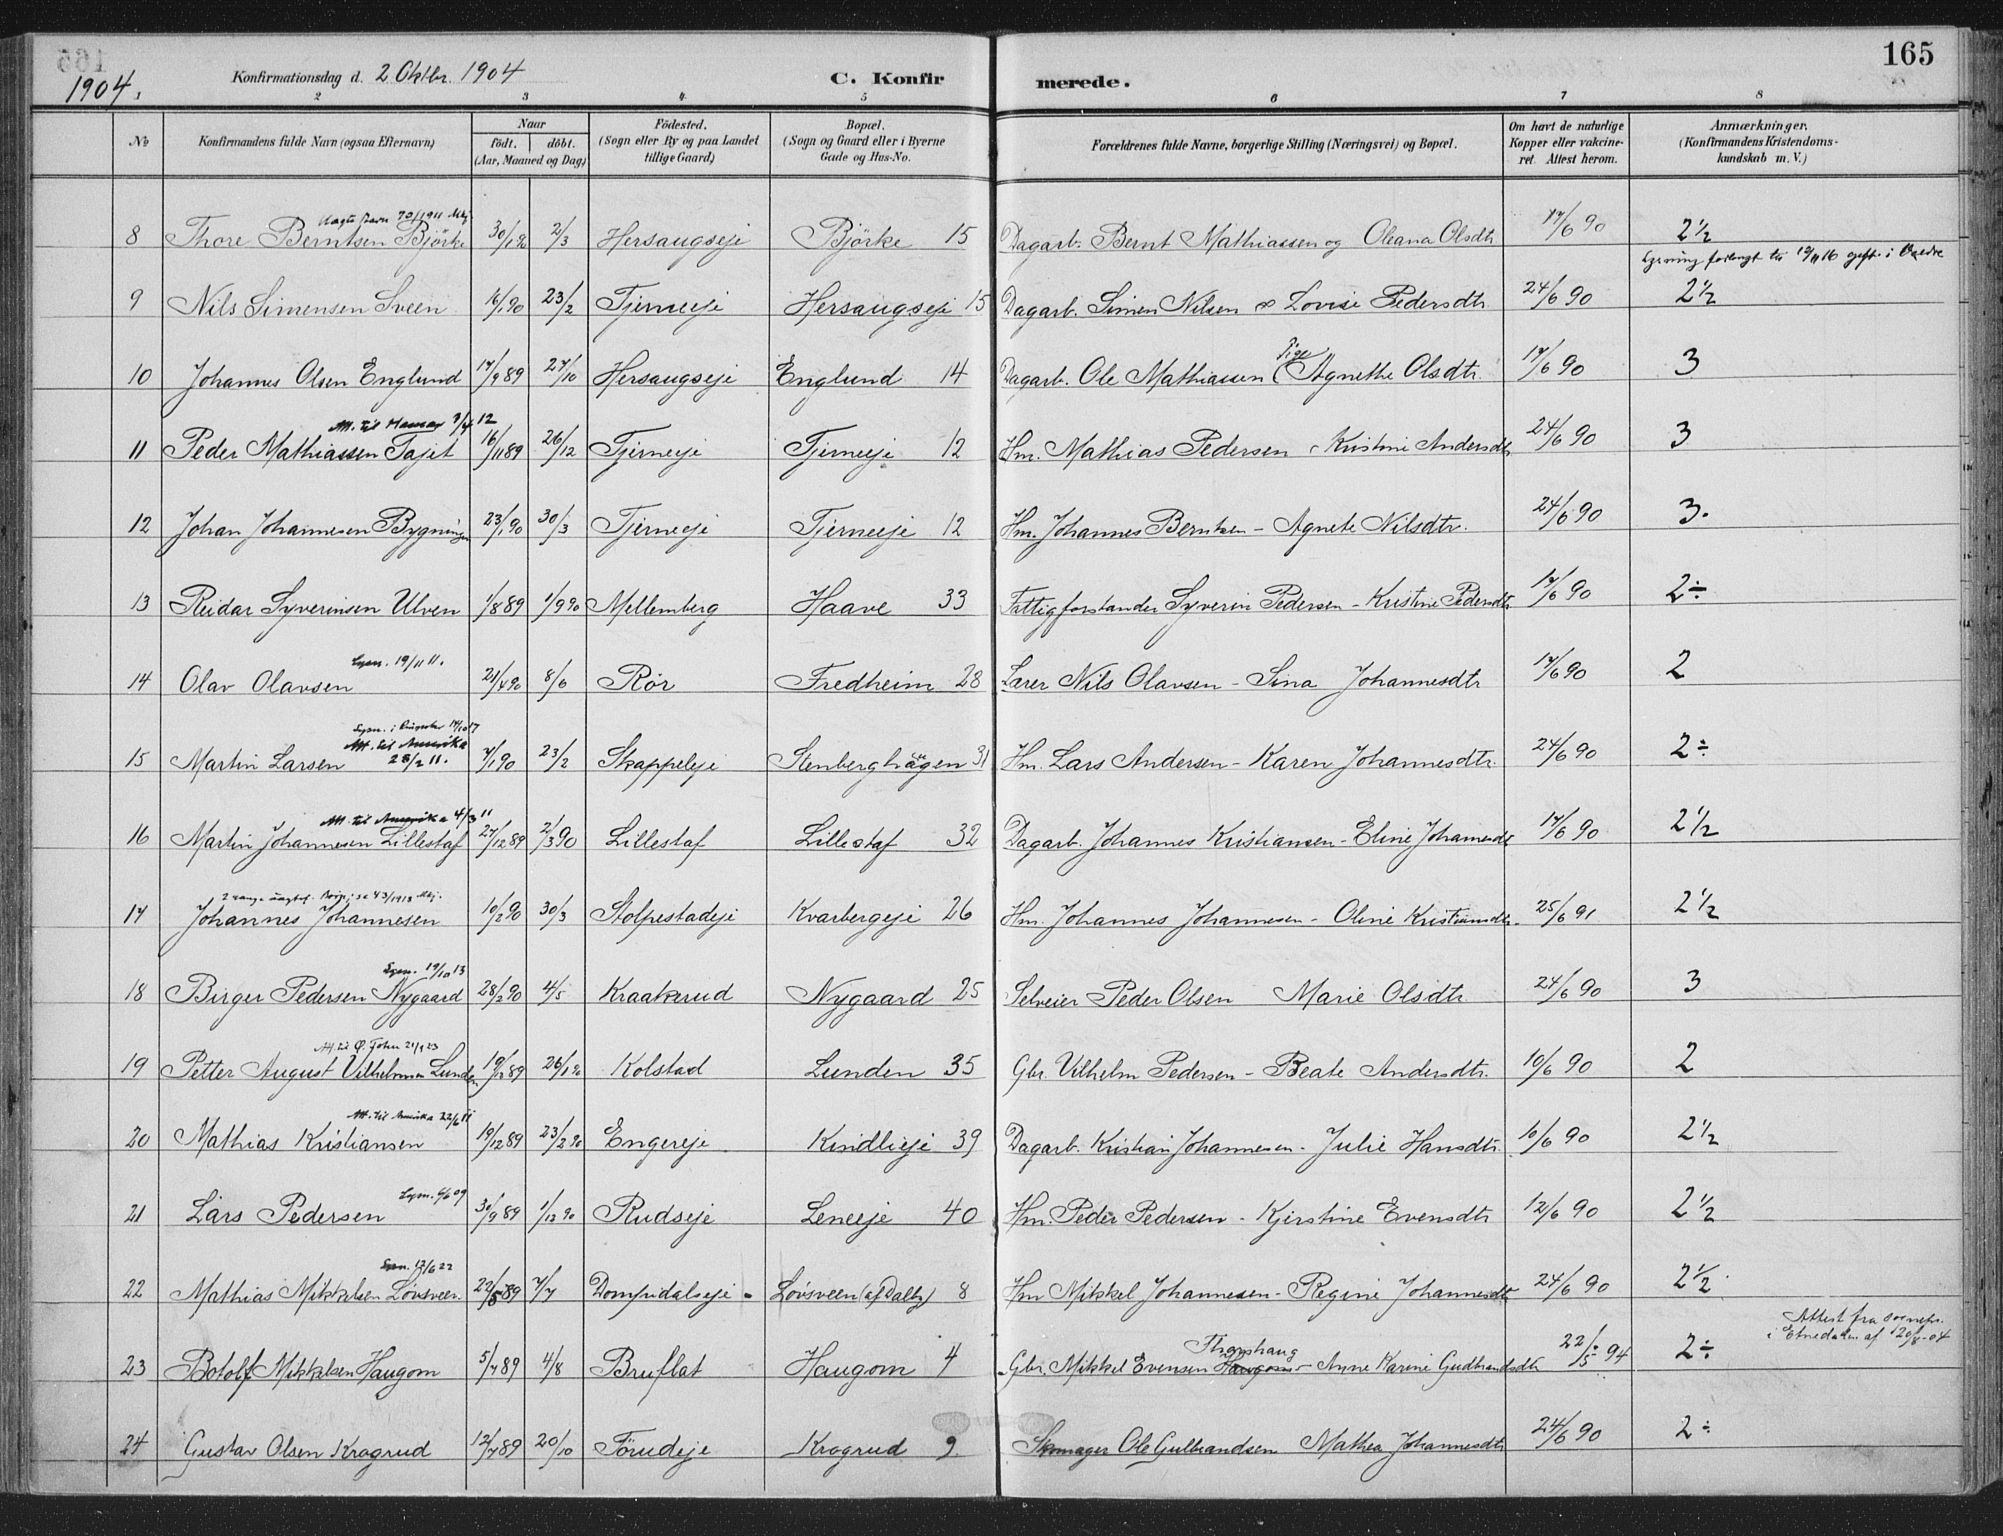 165
1904. Konfirmationsdag d. 2 Oktbr. 1904 C. Konfirmerede.
1 2 3 4. 5 6 7 8
№ Konfirmandens fulde Navn (ogsaa Efternavn) Naar født. døbt. (Aar, Maaned og Dag) Fødested. (Sogn eller By og paa Landet tillige Gaard) Bopæl. (Sogn og Gaard eller i Byerne Gade og Hus-No. Forældrenes fulde Navne, borgerlige Stilling (Næringsvei) og Bopæl. Om havt de naturlige Kopper eller vakcineret. Attest herom. Anmærkninger. (Konfirmandens Kristendomskundskab m. V.)
8 Thore Berntsen Björke 30/1 90 2/3 Hersaugseje Björke 15 Dagarb. Bernt Mathiassen og Oleana Olsdtr 17/6 90 2½
9 Nils Simensen Sveen 16/1 90 23/2 Tjerneeje Hersaugseje 15 Dagarb. Simen Nilsen & Lovise Pedersdtr. 24/6 90 2½
10 Johannes Olsen Englund 17/9 89 27/10 Hersaugseje Englund 14 Dagarb. Ole Mathiassen Pige Agnethe Olsdtr. 17/6 90 3
Att. til Hamar 3/4 12
11 Peder Mathiassen Tajet 16/11 89 26/12 Tjerneeje Tjerneeje 12 Hm. Mathias Pedersen Kristine Andersdtr 24/6 90 3
12 Johan Johannesen Bygningen 23/1 90 30/3 Tjerneeje Tjerneeje 12 Hm. Johannes Berntsen - Agnete Nilsdtr. 24/6 90 3.
13 Reidar Syverinsen Ulven 1/8 89 1/9 90 Mellemberg Haave 33 Fattigforstander Syverin Pedersen - Kristine Pedersdtr. 17/6 90 2÷
Lysn. 19/11 11.
14 Olav Olavsen 21/4 90 8/6 Rör Fredheim 28 Lærer Nils Olavsen - Sina Johannesdtr 17/6 90 2
Att. til Amerika
28/2 11.
15 Martin Larsen 7/1 90 23/2 Skappeleje Stenberghagen 31 Hm. Lars Andersen - Karen Johannesdtr. 24/6 90 2÷
Att. til Amerika 4/3 11
16 Martin Johannesen Lillestaf 27/12 89 2/3 90 Lillestaf Lillestaf 32 Dagarb. Johannes Kristiansen - Eline Johannesdtr 17/6 90 2½
17 Johannes Johannesen 10/2 90 30/3 Stolpestadeje Kvarbergeje 26 Hm. Johannes Johannesen - Oline Kristiansdtr. 25/6 91 2½
Lysn. 19/10 13
18 Birger Pedersen Nygaard 28/2 90 4/5 Kraakerud Nygaard 25 Selveier Peder Olsen Marie Olsdtr 24/6 90 3
19 Petter August Vilhelmsen Lunden 19/12 89 26/1 90 Kolstad Lunden 35 Gbr. Vilhelm Pedersen - Beate Andersdtr. 10/6 90 2
Att. til Amerika 22/6 11
20 Mathias Kristiansen 19/12 89 23/2 90 Engereje Kindlieje 39 Dagarb. Kristian Johannesen. Julie Hansdtr. 10/6 90 2½
Lysn. 6/6 09
21 Lars Pedersen 30/9 89 1/13 90 Rudseje Leneeje 40 Hm. Peder Pedersen - Kjerstine Evensdtr 12/6 90 2½
Lysn. 12/6 22
22 Mathias Mikkelsen Lövsveen. 22/5 89 7/7 Dompidalseje Lövsveen (af Dalby) 8 Hm Mikkel Johannesen - Regine Johannesdtr 24/6 90 2½
Attest fra
i Etnedalen af 20/8-04
23 Botolf Mikkelsen Haugom 5/7 89 4/8 Bruflat Haugom 4 Gbr. Mikkel Evensen Haugom - Anne Karine Gudbrandsdtr 22/5 94 2÷
24 Gustav Olsen Krogrud 12/7 89 20/10 Förudeje Krogrud 9. Skomager Ole Gulbrandsen Mathea Johannesdtr 24/6 90 2÷